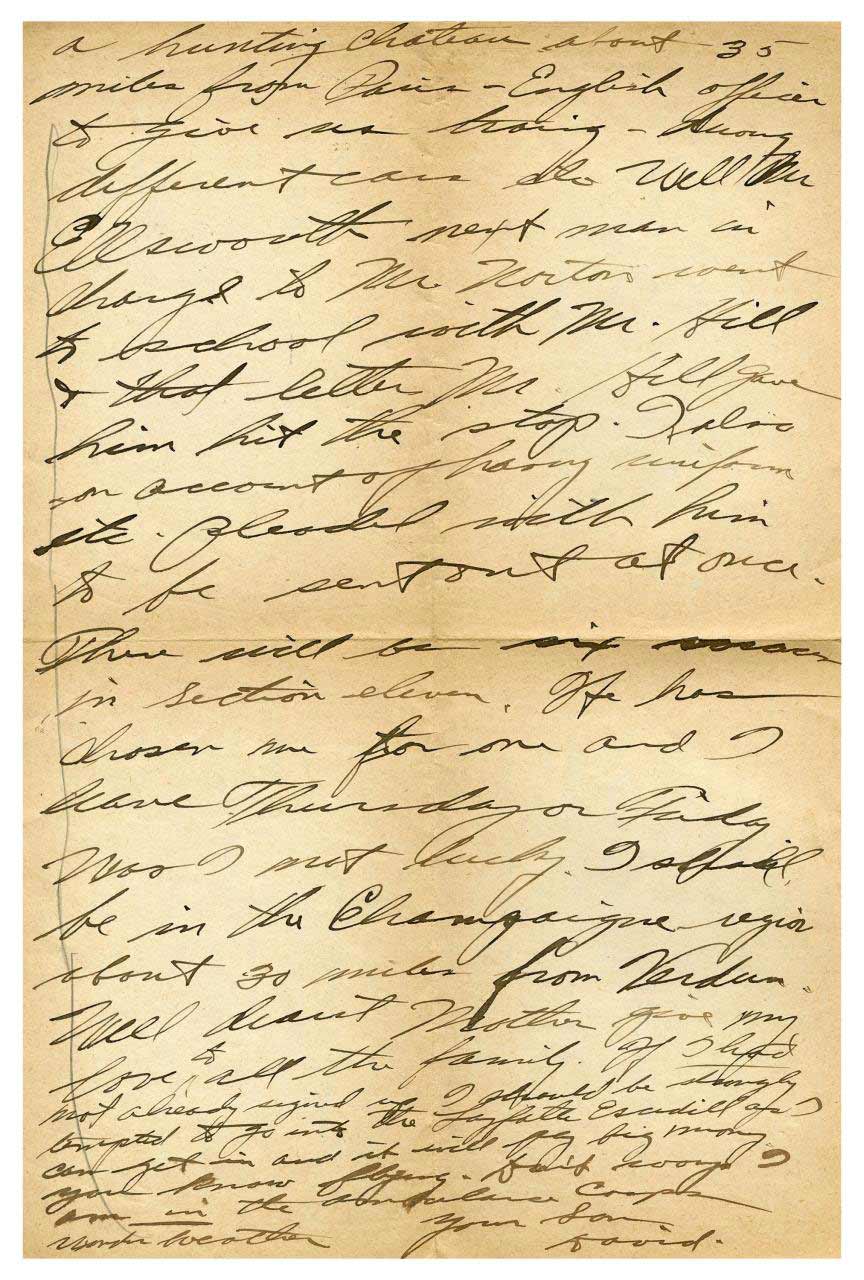 a hunting chateau about 35
miles from Paris - English officer
to give us - driving
different cars etc Well Mr
Ellsworth next man in
charge to Mr. Norton went
to school with Mr. Hill
& that letter Mr. Hill gave
him hit the stop. I also
-on account of having uniform
etc. pleaded with him
to be sent out at once.
There will be six
in section eleven. He has
chosen me for one and I
leave Thursday or Friday
Was I not lucky. I shall
be in the Champaigne region
about 30 miles from Verdun.
Well dearest Mother give my
love to all the family. If I had
not already signed up I should be strongly
tempted to go into the Layfatte Escadrill as I
can get in and it will pay big money
you know flying. Don't worry I
am in the ambulance Corps
your son
David.